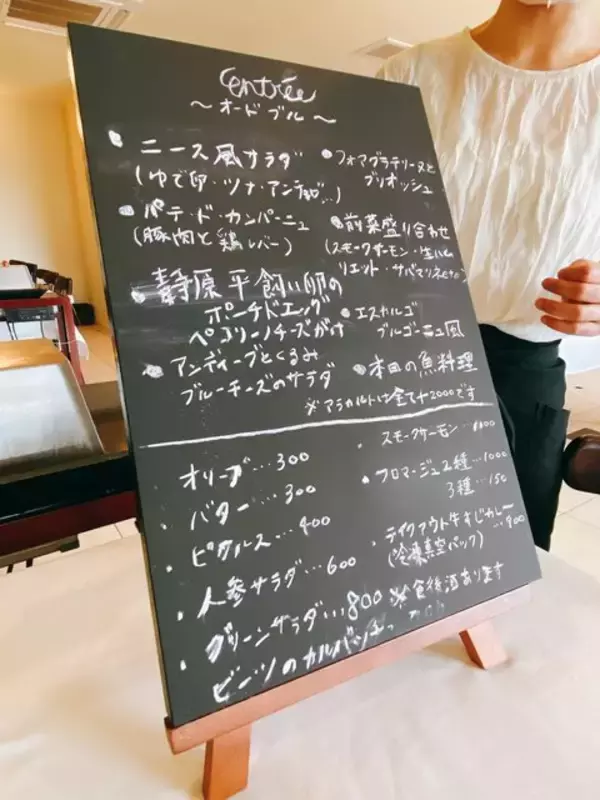 entrée
～オードブル～
・ニース風サラダ
(ゆで卵・ツナ・アンチョビ...)
・パテ・ド・カンパーニュ
(豚肉と鶏レバー)
・静原平飼い卵の
ポーチドエッグ
ペコリーノチーズがけ
・アンディーブとくるみ
ブルーチーズのサラダ
・フォアグラテリーヌと
ブリオッシュ
・前菜盛り合わせ
(スモークサーモン・生ハム
リエット・サバマリネetc..)
・エスカルゴ
ブルゴーニュ風
・本日の魚料理
※アラカルトは全て+2000です
オリーブ...300
・バター...300
・ピクルス...400
・人参サラダ...600
・グリーンサラダ...800
ビーツのカルパッチョ
スモークサーモン...
・フロマージュ2種...1000
3種...150
・テイクアウト牛すじカレー
(冷凍真空パック) ...900
※食後酒あります